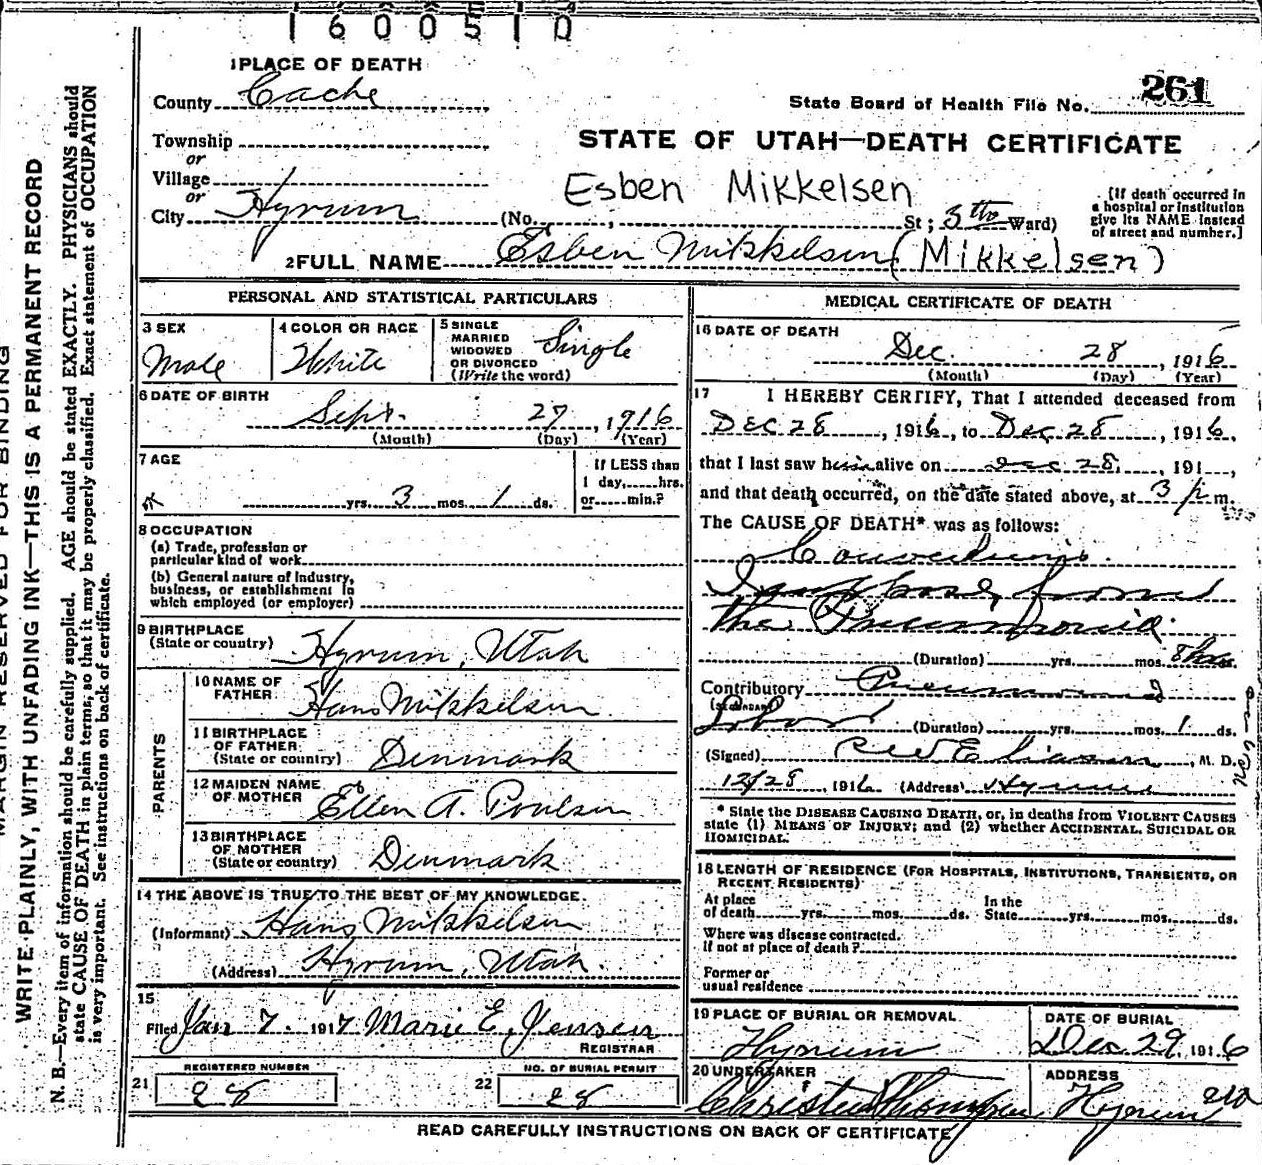 1600510
1 PLACE OF DEATH
County Cache
State Board of Health File No. 261
Township
or
Village
or
City Hyrum
STATE OF UTAH—DEATH CERTIFICATE
Esben Mikkelsen
(No. St; 3th Ward)
[If death occurred in
a hospital or institution
give its NAME instead
of street and number.]
2 FULL NAME Esben Mikkelsen (Mikkelsen)
PERSONAL AND STATISTICAL PARTICULARS
3 SEX
Male
4 COLOR OR RACE
White
5 SINGLE
MARRIED
WIDOWED
OR DIVORCED
(Write the word)
Single
6 DATE OF BIRTH
Sept. 27, 1916
(Month) (Day) (Year)
7 AGE
yrs. 3 mos. 1 ds.
If LESS than
1 day, hrs.
or min.?
8 OCCUPATION
(a) Trade, profession or
particular kind of work
(b) General nature of Industry,
business, or establishment in
which employed (or employer)
9 BIRTHPLACE
(State or country) Hyrum, Utah
PARENTS
10 NAME OF
FATHER Hans Mikkelsen
11 BIRTHPLACE
OF FATHER
(State or country) Denmark
12 MAIDEN NAME
OF MOTHER Ellen A. Poulsen
13 BIRTHPLACE
OF MOTHER
(State or country) Denmark
14 THE ABOVE IS TRUE TO THE BEST OF MY KNOWLEDGE.
(Informant) Hans Mikkelsen
(Address) Hyrum, Utah.
15
Filed Jan 7. 1917 Marie E. Jensen
REGISTRAR
REGISTERED NUMBER
21 28
NO. OF BURIAL PERMIT
22 28
MEDICAL CERTIFICATE OF DEATH
16 DATE OF DEATH
Dec. 28, 1916
(Month) (Day) (Year)
17 I HEREBY CERTIFY, That I attended deceased from
Dec 28, 1916, to Dec 28, 1916,
that I last saw him alive on Dec 28, 191 ,
and that death occurred, on the date stated above, at 3 p.m.
The CAUSE OF DEATH* was as follows:
from
the Pneumonia
(Duration) yrs. mos.
Contributory Pneumonia
(SECONDARY)
Lobar (Duration) yrs. mos. 1 ds.
(Signed) , M. D.
12/28 1916 (Address) Hyrum
* State the DISEASE CAUSING DEATH, or, in deaths from VIOLENT CAUSES
state (1) MEANS OF INJURY; and (2) whether ACCIDENTAL, SUICIDAL OR
HOMICIDAL.
18 LENGTH OF RESIDENCE (FOR HOSPITALS, INSTITUTIONS, TRANSIENTS, OR
RECENT RESIDENTS)
At place
of death yrs. mos. ds.
In the
State yrs. mos. ds.
Where was disease contracted,
If not at place of death?
Former or
usual residence
19 PLACE OF BURIAL OR REMOVAL
Hyrum
DATE OF BURIAL
Dec 29, 1916
20 UNDERTAKER
ADDRESS
Hyrum
READ CAREFULLY INSTRUCTIONS ON BACK OF CERTIFICATE
MARGIN RESERVED FOR BINDING
WRITE PLAINLY, WITH UNFADING INK—THIS IS A PERMANENT RECORD
N. B.—Every item of information should be carefully supplied. AGE should be stated EXACTLY. PHYSICIANS should
state CAUSE OF DEATH in plain terms, so that it may be properly classified. Exact statement of OCCUPATION
is very important. See instructions on back of certificate.